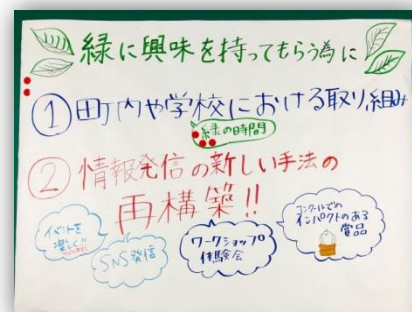 緑に興味を持ってもらう為に
①町内や学校における取り組み
緑の時間
②情報発信の新しい手法の
再構築!!
イベントを
楽しく!!
SNS発信
ワークショップ
体験会
コンクールでの
インパクトのある
賞品